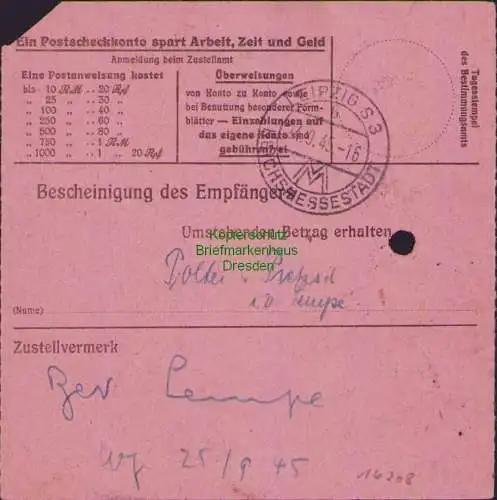 Ein Postscheckkonto spart Arbeit, Zeit und Geld
Anmeldung beim Zustellamt
Eine Postanweisung kostet
bis 10 RM .. 20 Rpf
„ 25 „ .. 30 „
„ 100 „ .. 40 „
„ 250 „ .. 60 „
„ 500 „ .. 80 „
„ 750 „ .. 1 RM
„ 1000 „ .. 1 „ 20 Rpf
Überweisungen
von Konto zu Konto sowie
bei Benutzung besonderer Form-
blätter — Einzahlungen auf
das eigene Konto sind
gebührenfrei
LEIPZIG S 3
9.45-16
REICHSMESSESTADT
Tagesstempel
des Bestimmungsamts
Bescheinigung des Empfängers
Umstehenden Betrag erhalten
Kopterschutz
Briefmarkenhaus
Dresden
(Name)
Zustellvermerk
25/9 45